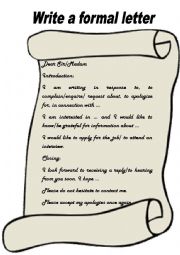 Write a formal letter
Dear Sir/Madam
Introduction:
I am writing in response to, to
complain/enquire/ request about, to apologize
for, in connection with ...
I am interested in ... and I would like to
know/be grateful for information about ...
I would like to apply for the job/ to attend an
interview.
Closing:
I look forward to receiving a reply/to hearing
from you soon. I hope ...
Please do not hesitate to contact me.
Please accept my apologies once again.